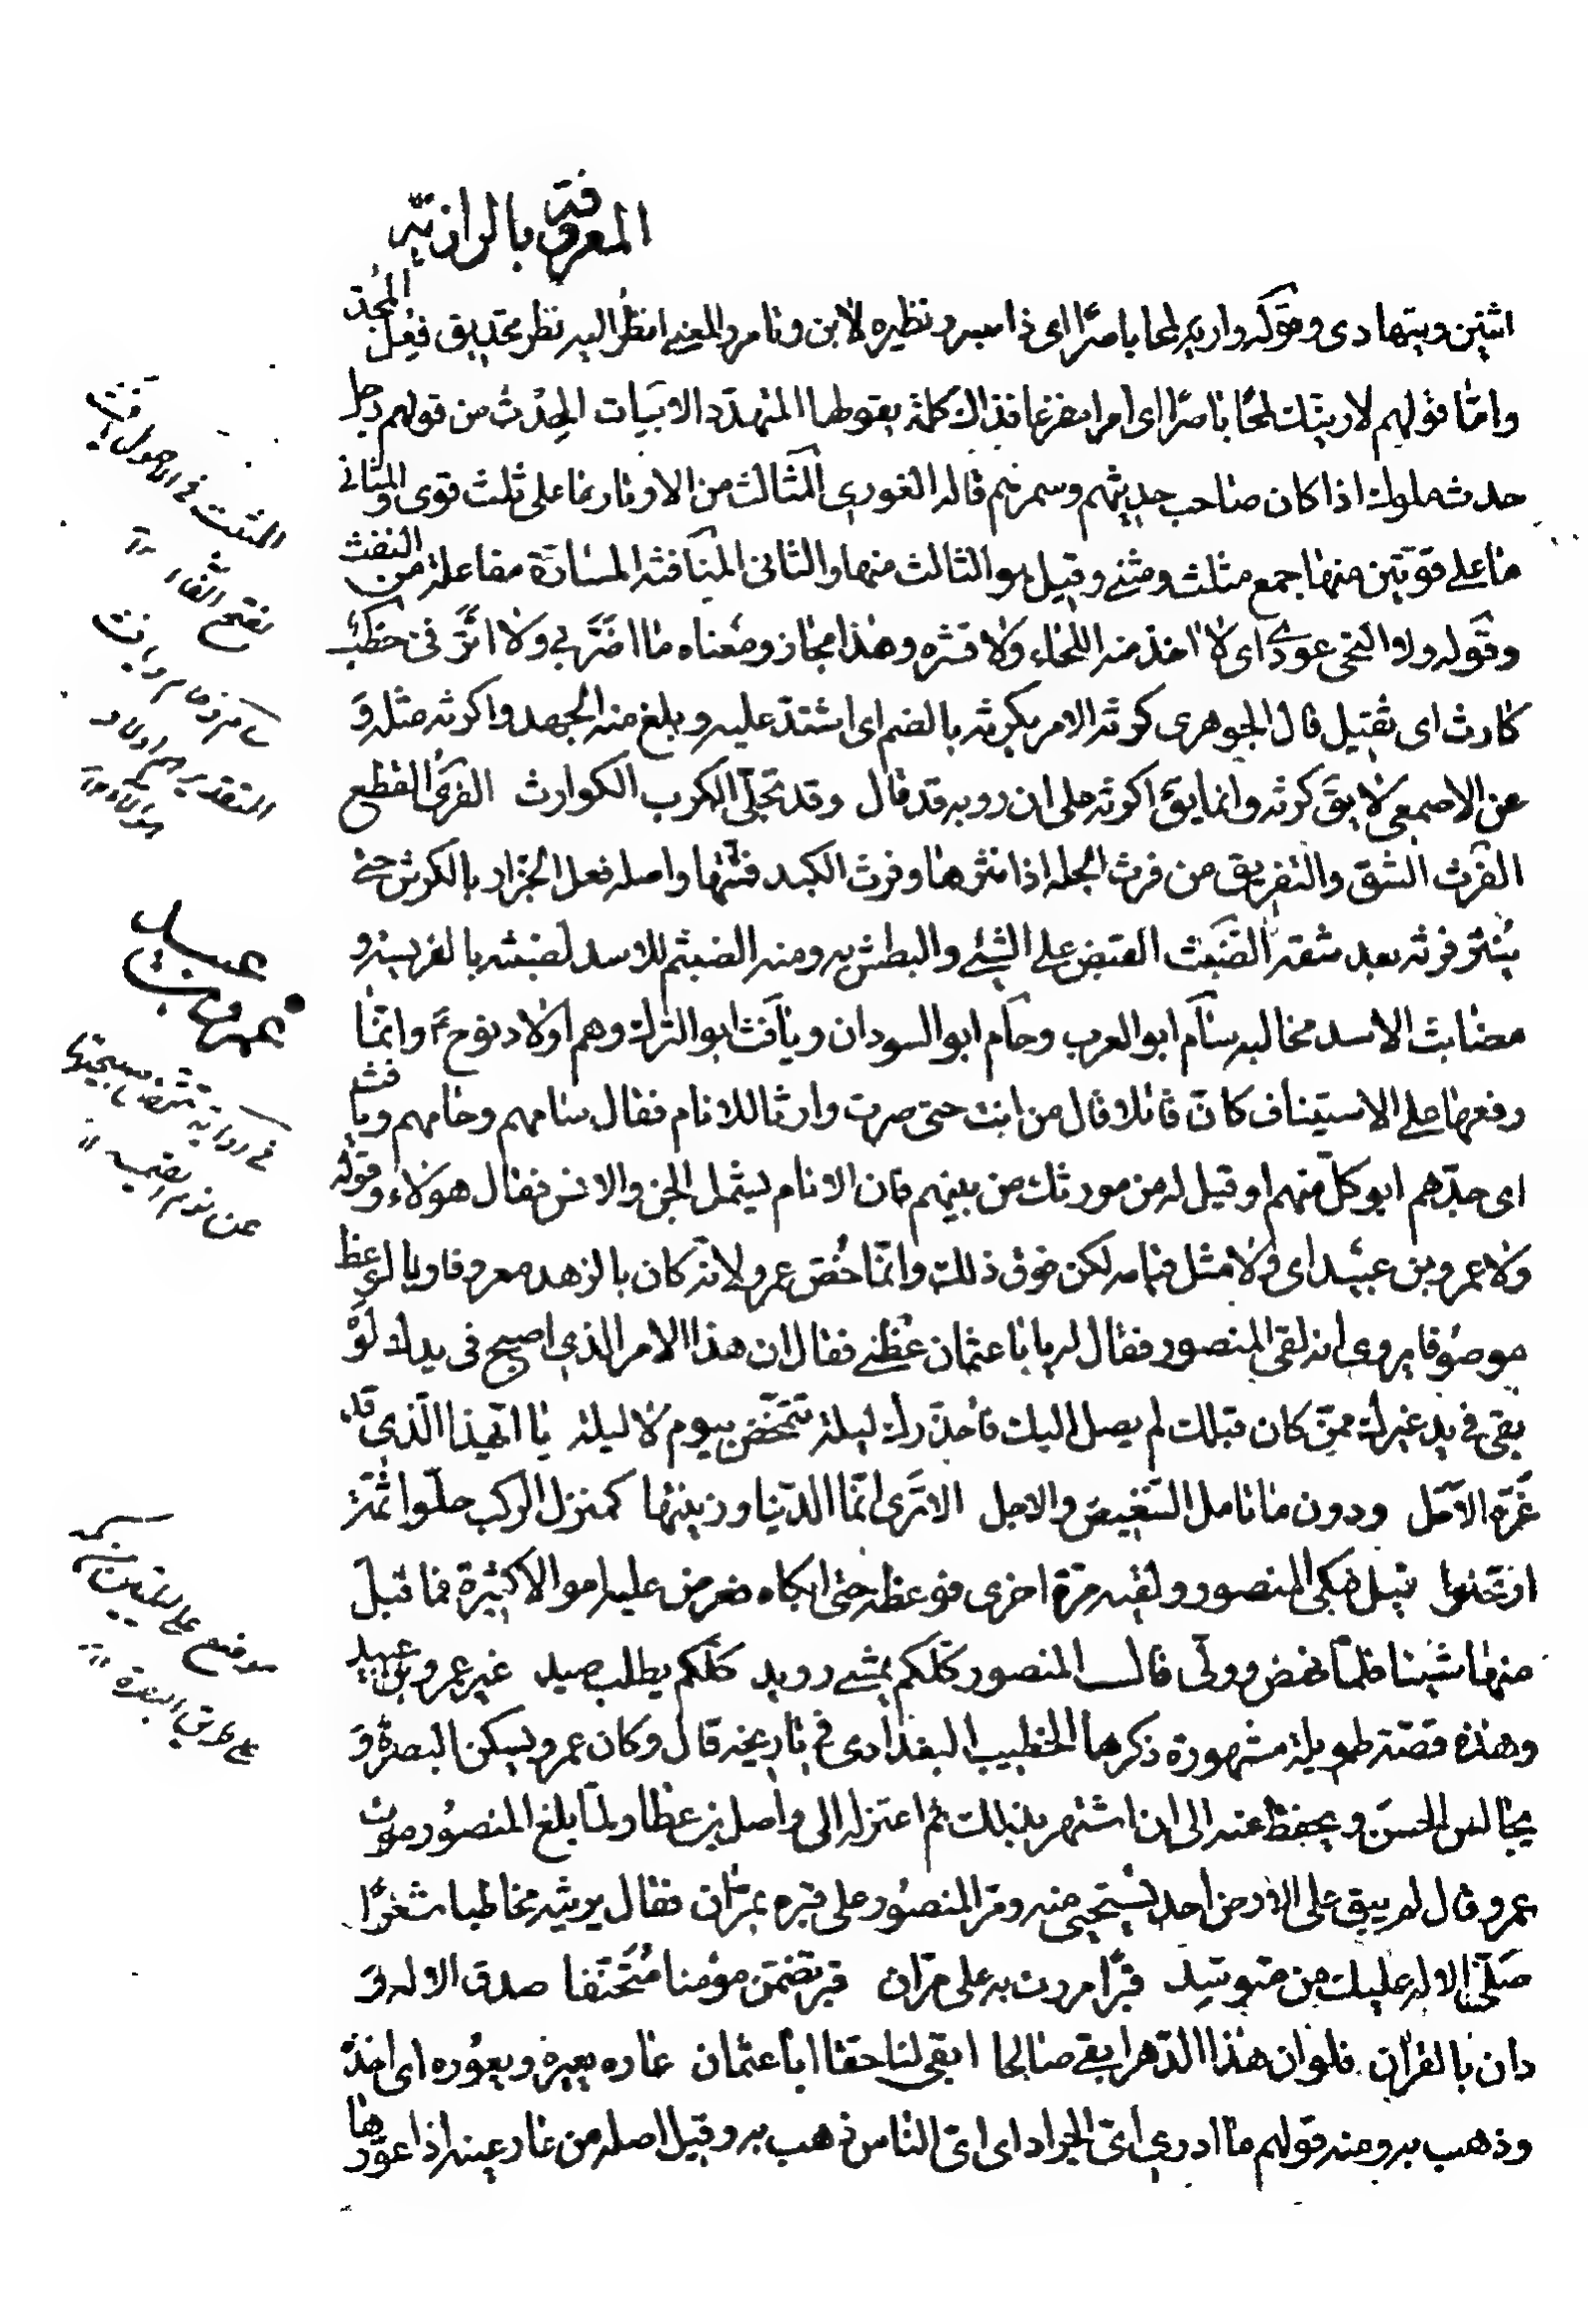 المعروفة بالرازية
اثنين ويتهادى وقوله واريه لمحا باصرا اى ذا بصر ونظيره لابن وتامر والمعنى انظر اليه نظر تحديق فيه المجد
واما قولهم لارينك لمحا باصرا اى امرا مفزعا فذاك كلمة يقولها المتهدد الابيات الحدث من قولهم رجل
حدث ملوك اذا كان صاحب حديثهم وسمرهم قاله الغورى المثالث من الاوتار ما على ثلث قوى والمثانى
ما على قوتين منها جمع مثلث ومثنى وقيل هو الثالث منها والثانى المنافثة المسارة مفاعلة من النفث
وقوله ولا التحى عودى اى لا اخذ منه اللحاء ولا قشره وهذا مجاز ومعناه ما اضر بى ولا اثر فى خطب
كارث اى ثقيل قال الجوهرى كرثه الامر يكرثه بالضم اى اشتد عليه وبلغ منه الجهد واكرثه مثله و
عن الاصمعى لا يق كرثه وانما يق اكرثه على ان روبه قد قال وقد تجلى الكرب الكوارث الفرى القطع
الفرث الشق والتفريق من فرث الجلة اذا نثرها وفرث الكبد فتتها واصله فعل الجزار بالكرش حتى
ينثر فرثه بعد شقه الضبث القبض على الشئ والبطش به ومنه الضبثم للاسد لضبثه بالفريسة و
مضابث الاسد مخالبه سام ابو العرب وحام ابو السودان ويافث ابو الترك وهم اولاد نوح ع وانما
رفعها على الاستيناف كان قائلا قال من انت حتى صرت وارثا للانام فقال سامهم وحامهم ويافث
اى جدهم ابو كل منهم او قيل له من مورثك من بينهم فان الانام يشمل الجن والانس فقال هولاء وقوله
ولا عمرو بن عبيد اى ولا مثل قيامه لكن فوق ذلك وانما خص عمرو لانه كان بالزهد معروفا وبالوعظ
موصوفا يروى انه لقى المنصور فقال له يا با عثمان عظنى فقال ان هذا الامر الذى اصبح فى يدك لو
بقى فى يد غيرك ممن كان قبلك لم يصل اليك فاحذر ليلة تتمخض بيوم لا ليلة يا ايهذا الذى قد
غره الامل ودون ما تامل التنغيص والاجل الا ترى انما الدنيا وزينتها كمنزل الركب حلوا ثمة
ارتحلوا فبكى المنصور ولقيه مرة اخرى فوعظه حتى ابكاه فعرض عليه اموالا كثيرة فما قبل
منها شيئا فلما نهض وولى قال المنصور كلكم يمشى رويد كلكم يطلب صيد غير عمرو بن عبيد
وهذه قصة طويلة مشهورة ذكرها الخطيب البغدادى فى تاريخه قال وكان عمرو يسكن البصرة و
يجالس الحسن ويحفظ عنه الى ان اشتهر بذلك ثم اعتزله الى واصل بن عطا ولما بلغ المنصور موت
عمرو قال لم يبق على الارض احد يستحيى منه ومر المنصور على قبره بمران فقال يرثيه مخاطبا شعرا
صلى الاله عليك من متوسد قبرا مررت به على مران قبر تضمن مؤمنا متحنفا صدق الاله و
دان بالقران فلو ان هذا الدهر ابقى صالحا ابقى لنا حقا ابا عثمان عاره يعيره ويعوره اى اخذه
وذهب به ومنه قولهم ما ادرى اى الجراد اى اى الناس ذهب به وقيل اصله من عار عينه اذا عورها
بفتح الثاء
عبيد
عمرو بن
موضع على
على طريق البصرة